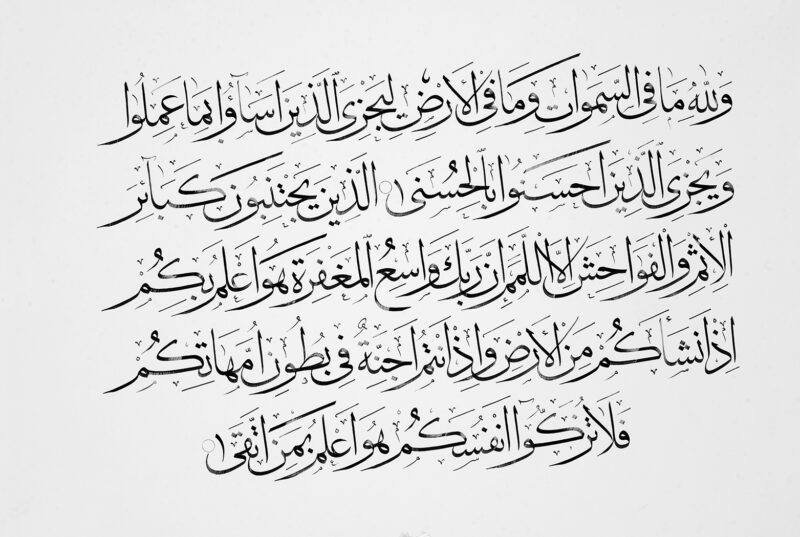 وَلِلّٰهِ مَا فِى السَّمٰوَاتِ وَمَا فِى الْاَرْضِ لِيَجْزِىَ الَّذٖينَ اَسَاۤؤُا بِمَا عَمِلُوا
وَيَجْزِىَ الَّذٖينَ اَحْسَنُوا بِالْحُسْنٰى اَلَّذٖينَ يَجْتَنِبُونَ كَبَاۤئِرَ
الْاِثْمِ وَالْفَوَاحِشَ اِلَّا اللَّمَمَ اِنَّ رَبَّكَ وَاسِعُ الْمَغْفِرَةِ هُوَ اَعْلَمُ بِكُمْ
اِذْ اَنْشَاَكُمْ مِنَ الْاَرْضِ وَاِذْ اَنْتُمْ اَجِنَّةٌ فٖى بُطُونِ اُمَّهَاتِكُمْ
فَلَا تُزَكُّوۤا اَنْفُسَكُمْ هُوَ اَعْلَمُ بِمَنِ اتَّقٰى